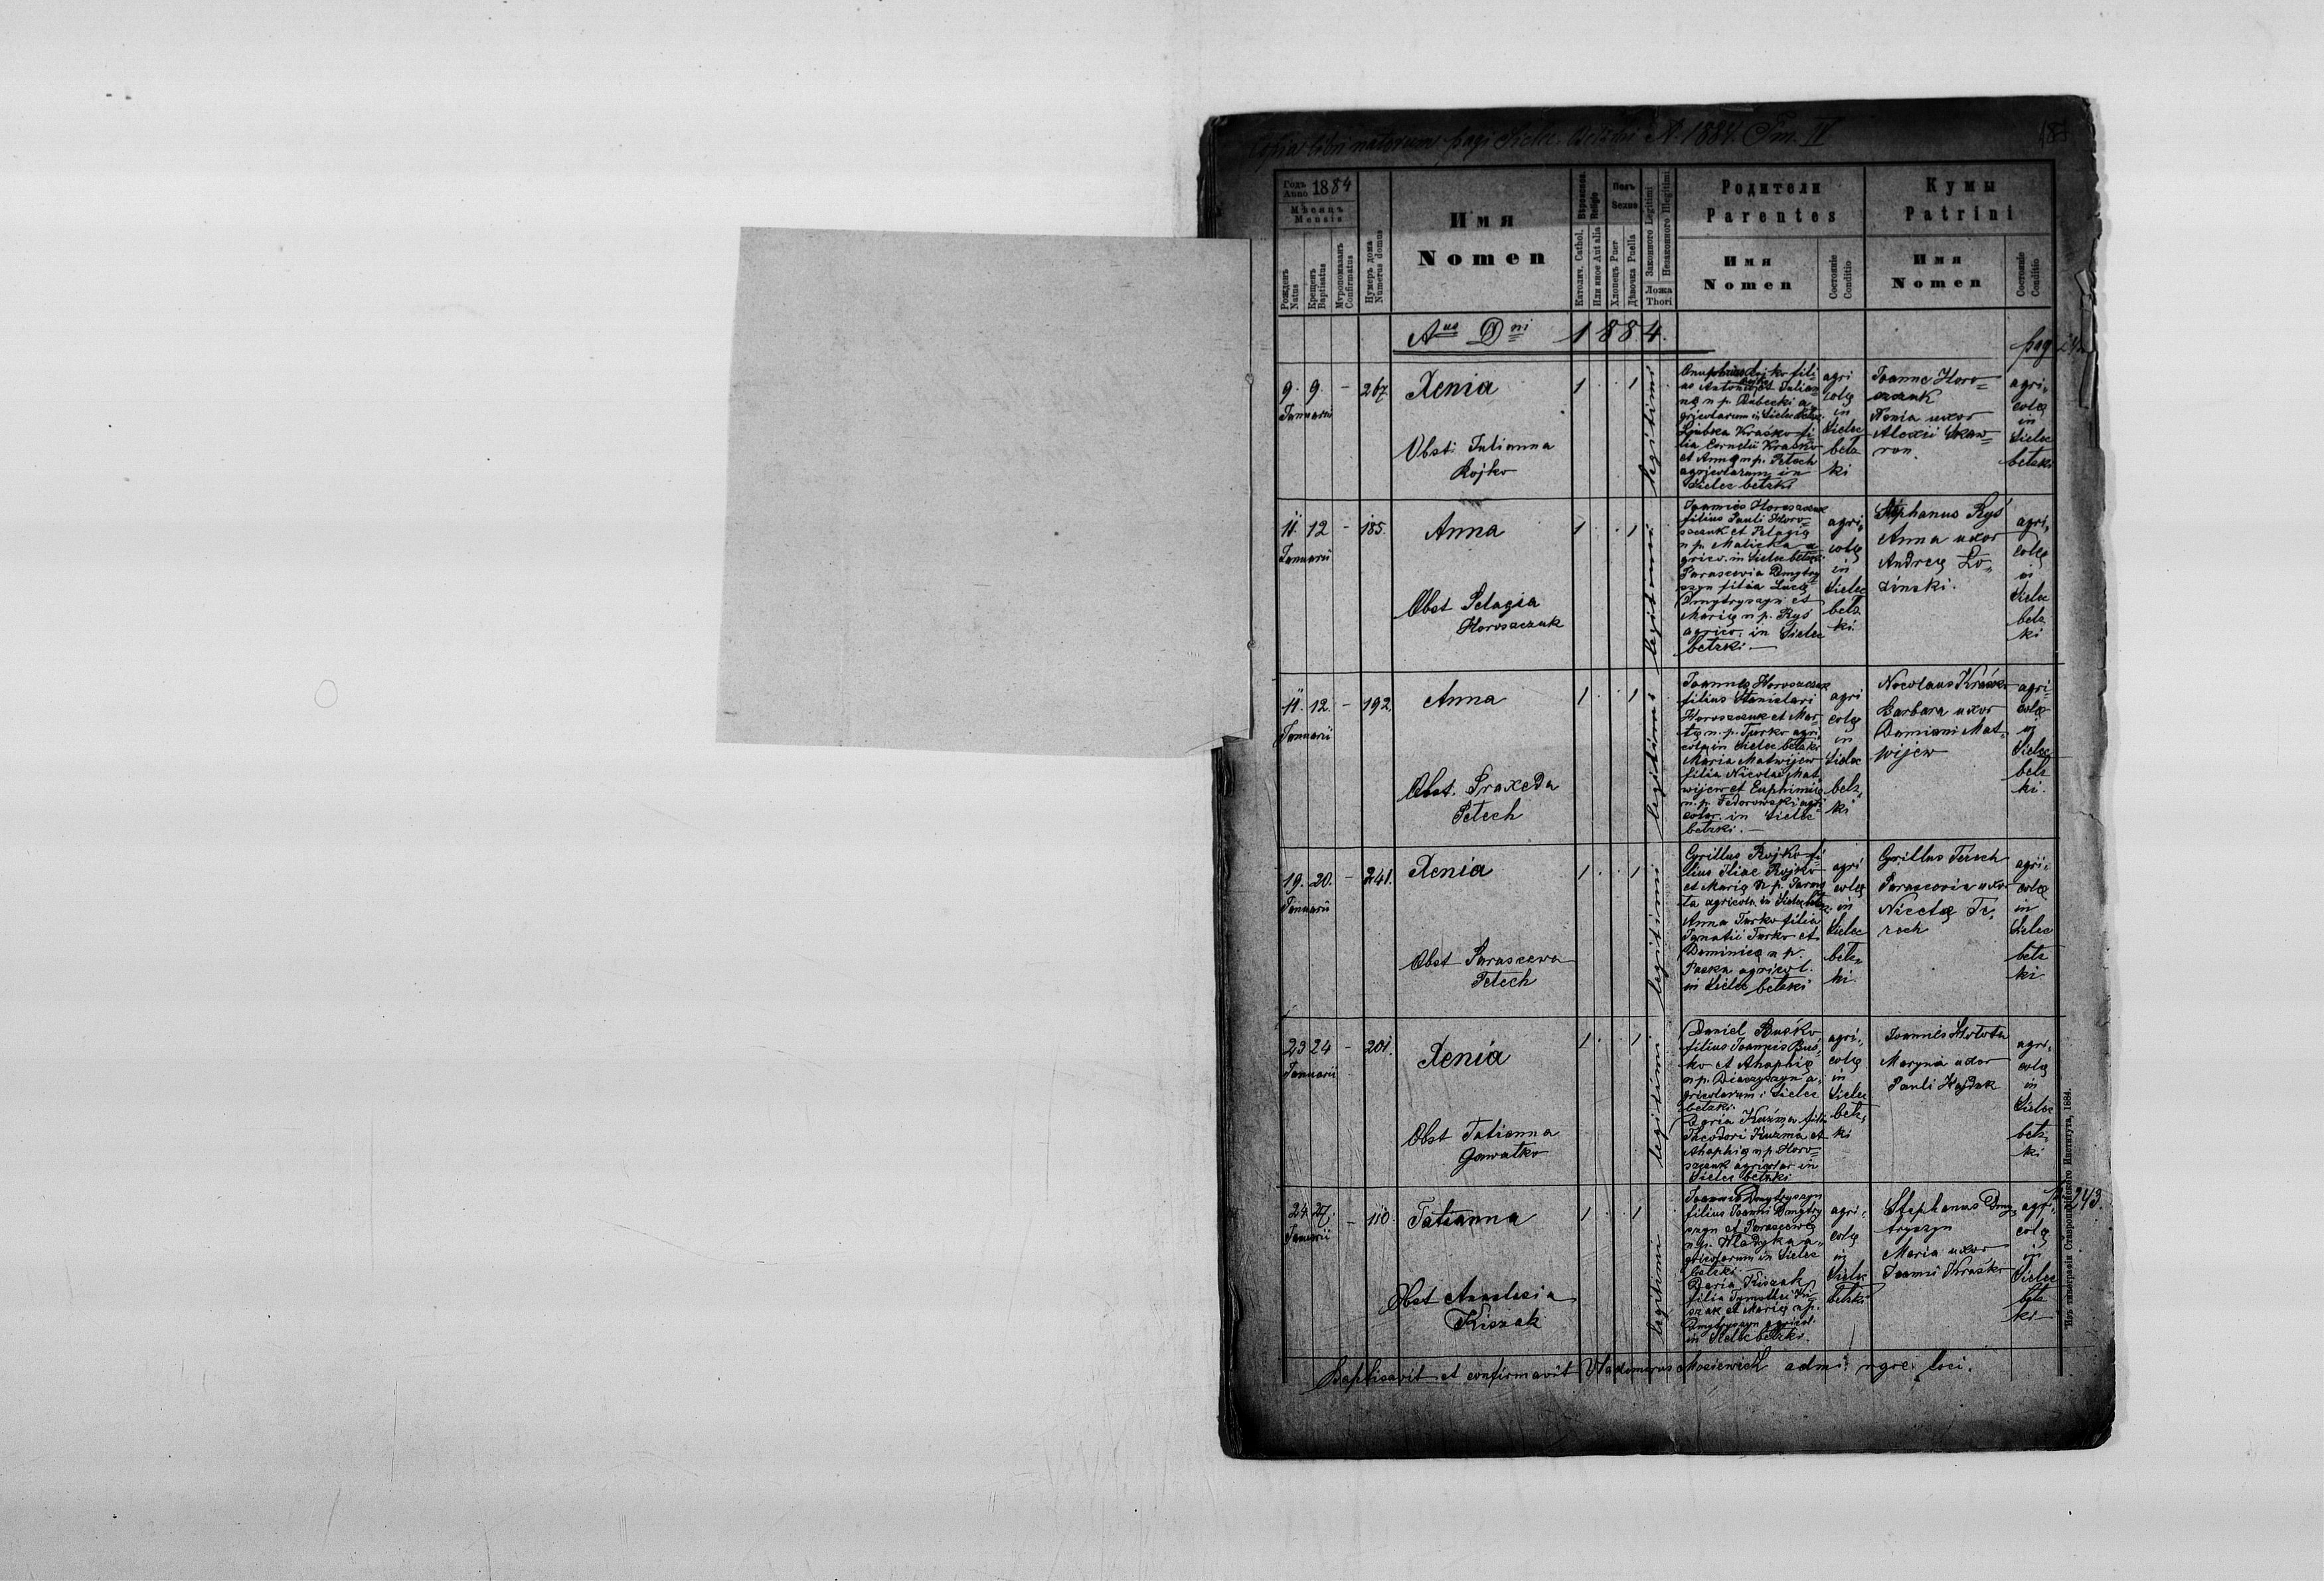 Copia libri natorum pagi Sielec bełzki A. 1884. Tm. IV.
Годъ Anno 1884
Мѣсяцъ
Mensis
Рожденъ
Natus
Крещенъ
Baptisatus
Мѵропомазанъ
Confirmatus
Нумеръ дома
Numerus domus
Имя
Nomen
Religio
Католич. Cathol.
Или иное Aut alia
Полъ
Sexus
Хлопецъ Puer
Дѣвочка Puella
Законного Legitimi
Незаконного Illegitimi
Ложа
Thori
Родители
Parentes
Имя
Nomen
Состояніе
Conditio
Кумы
Patrini
Имя
Nomen
Состояніе
Conditio
Aus Dni 1884.
pag
9. 9. - 267
Januarii
Xenia
1 1
Obst. Julianna
Rojko
legitimi
Rojko fili-
us Antonii et Julian-
nę n. p. Babecki a
gricolarum in Sielec bełzk.
Kraśko fi-
lia Cornelii Kraśko
et Annę n. p. Petech
agricolarum in
Sielec bełzki
agri
colę
in
Sielec
bełz
ki
Joannes Horo=
szczuk
Xenia uxor
Alexii Skaw=
ron.
agri,
colę
in
Sielec
bełzki
11. 12 - 185.
Januarii
Anna
1 1
Obst Pelagia
Horoszczuk
legitimi
Joannes Horoszczuk
filius Pauli Horo=
szczuk et Pelagię
n. p. Malicka a
grico. in Sielec bełzki
Parascevia Dmytry
szyn filia Lucę
Dmytryszyn et
Marię n p. Ryś
agrico. in Sielec
bełzki. —
agri,
colę
in
Sielec
bełz
ki.
Stephanus Ryś
Anna uxor
Andreę Ło„
ziński.
agri,
colę
in
Sielec
bełz
ki
11. 12. - 192.
Januarii
Anna
1 1
Obst. Praxeda
Petech
legitimi
Joannes Horoszczuk
filius Stanislavi
Horoszczuk et Mar-
tę n. p. Turko agri
colę in Sielec bełzki
Maria Matwijew
filia Nicolai Mat
wijew et Euphimię
n. p. Fedorowski agri
colar. in Sielec
bełzki. —
agri
colę
in
Sielec
bełz,
ki
Nicolaus Kraśko
Barbara uxor
Damiani Mat„
wijew
agri-
colę
in
Sielec
bełz
ki.
19. 20. - 241.
Januarii
Xenia
1 1
Obst Parascewa
Petech
legitimi
Cyrillus Rojko fi
lius Iliae Rojko
et Marię n. p.
ta agricola. in Sielec bełzki
Anna Turko filia
Ignatii Turko et
Dominicę n p.
Paska agricol.
in Sielec bełzki
agri
colę
in
Sielec
bełz„
ki
Cyrillus Terech
Parascevia uxor
Nicetę Te„
rech
agri,
colę
in
Sielec
bełz
ki
23 24 - 201.
Januarii
Xenia
1 1
Obst Tatianna
Gawałko
legitimi
Daniel Buśko
filius Joannis Buś„
ko et Ahaphię
n p. Diaczyszyn a„
gricolarum i Sielec
bełzki.
Daria Kuźma fili.
Theodori Kuzma et
Ahaphię n p Horo=
szczuk agricolar in
Sielec bełzki
agri,
colę
in
Sielec
bełz,
ki
Joannes
Maryna uxor
Pauli Hajduk
agri,
colę
in
Sielec
bełz,
ki
24. 27. - 110
Januarii
Tatianna
1 1
Obst Anastasia
Kiszak
legitimi
Joannes Dmytryszyn
filius Joannis Dmytry
szyn et Parascewę
n. p. Wladyka a„
gricolarum in Sielec
bełzki. —
Daria Kiszak
filia Tymothei Ki
szak et Marię n p.
Dmytryszyn agricol.
in Sielec bełzki.
agri,
colę
in
Sielec
bełzki
Stephanus Dmy„
tryszyn
Maria uxor
Joannis Kraśko
agri,
colę
in
Sielec
bełz
ki
243.
Baptisavit et confirmavit Vladimirus Mosiewicz adm: ngrc. loci.
Изъ типографіи Ставропигійского Института, 1884.